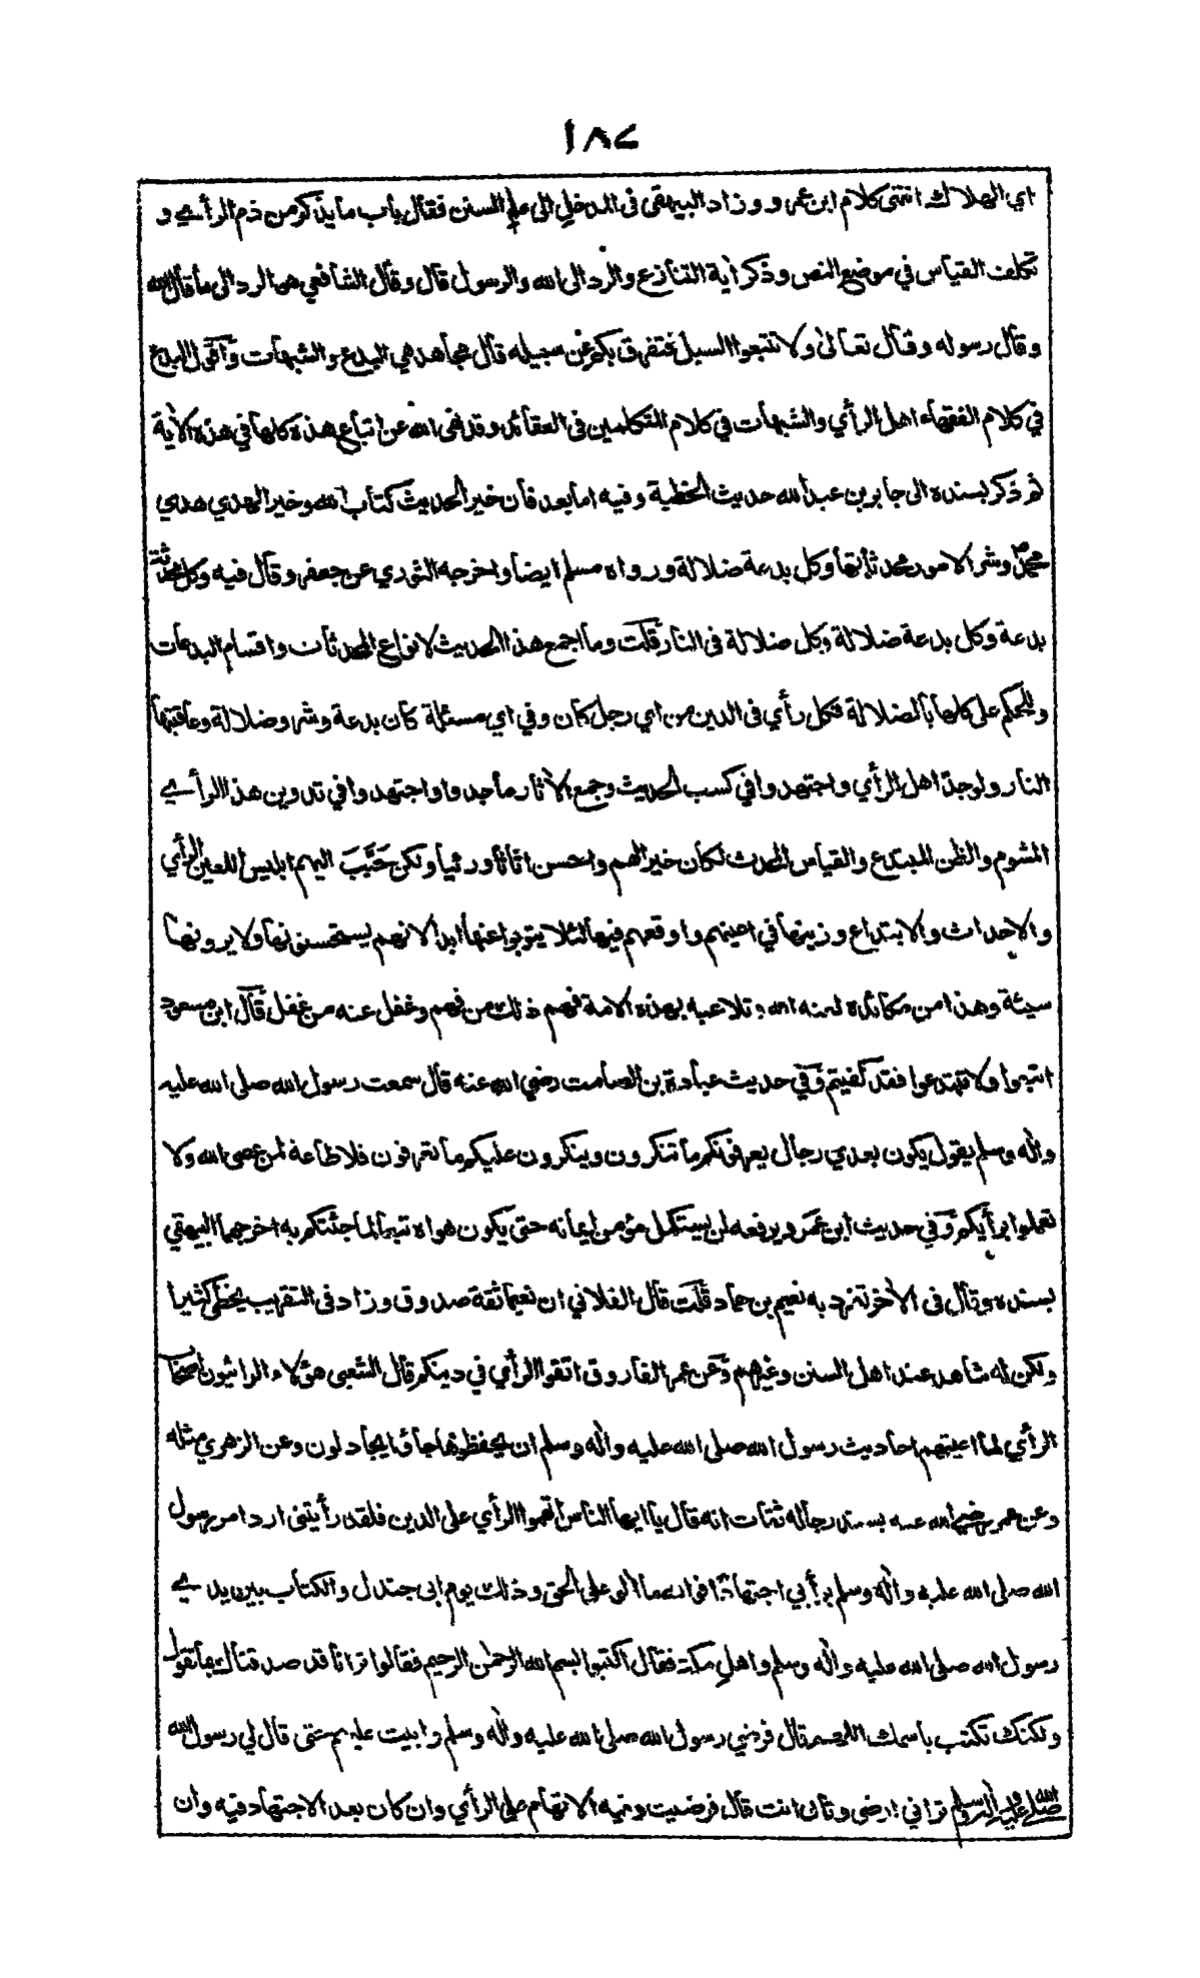 ١٨٧
اي الهلاك انتهى كلام ابن عمر و وزاد البيهقي فى المدخل الى علم السنن فقال باب مايذكر من ذم الرأي و
تكلف القياس في موضع النص وذكر أية التنازع والرد الى الله والرسول قال وقال الشافعي هو الرد الى ما قال الله
وقال رسوله وقال تعالى ولا تتبعوا السبل فتفرق بكم عن سبيله قال مجاهد هي البدع والشبهات وأقول البدع
في كلام الفقهاء اهل الرأي والشبهات في كلام المتكلمين فى العقائد وقد نهى الله عن اتباع هذه كلها في هذه الأية
ثم ذكر بسنده الى جابر بن عبد الله حديث الخطبة وفيه اما بعد فان خير الحديث كتاب الله وخير الهدي هدي
محمد وشر الامور محدثاتها وكل بدعة ضلالة ورواه مسلم ايضا واخرجه الثوري عن جعفر وقال فيه وكل محدثة
بدعة وكل بدعة ضلالة وكل ضلالة فى النار قلت وما اجمع هذا الحديث لانواع المحدثات واقسام البدعات
والحكم على كلها بالضلالة فكل رأي فى الدين من اي رجل كان وفي اي مسئلة كان بدعة وشر وضلالة وعاقبتها
النار ولوجد اهل الرأي واجتهدوا في كسب الحديث وجمع الأثار ماجدوا واجتهدوا في تدوين هذا الرأي
المشوم والظن المبتدع والقياس المحدث لكان خيرا لهم واحسن اثاثا ورئيا ولكن حَبَّبَ اليهم ابليس اللعين الرأي
والاحداث والابتداع وزينها في اعينهم واوقعهم فيها لئلا يتوبوا عنها ابدا لانهم يستحسنونها ولا يرونها
سيئة وهذا من مكائده لعنه الله وتلاعبه بهذه الامة فهم ذلك من فهم وغفل عنه من غفل قال ابن مسعود
اتبعوا ولا تبتدعوا فقد كفيتم وفي حديث عبادة بن الصامت رضي الله عنه قال سمعت رسول الله صلى الله عليه
وأله وسلم يقول يكون بعدي رجال يعرفونكم ما تنكرون وينكرون عليكم ما تعرفون فلا طاعة لمن عصى الله ولا
تعملوا برأيكم وفي حديث ابن عمر ويرفعه لن يستكمل مؤمن ايمانه حتى يكون هواه تبعا لما جئتكم به اخرجهما البيهقي
بسنده وقال فى الأخر تفرد به نعيم بن حماد قلت قال الفلاني ان نعيما ثقة صدوق وزاد فى التقريب يخطئ كثيرا
ولكن له شاهد عند اهل السنن وغيرهم وعن عمر الفاروق اتقوا الرأي في دينكم قال الشعبى هؤلاء الرائيون اصحاب
الرأي لما اعيتهم احاديث رسول الله صلى الله عليه وأله وسلم ان يحفظوها جاؤا يجادلون وعن الزهري مثله
وعن عمر رضي الله عنه بسند رجاله ثقات انه قال يا ايها الناس اتهموا الرأي على الدين فلقد رأيتنى ارد امر رسول
الله صلى الله عليه وأله وسلم برأيي اجتهادا فوالله ما ألو على الحق وذلك يوم ابى جندل والكتاب بين يدي
رسول الله صلى الله عليه وأله وسلم واهل مكة فقال اكتبوا بسم الله الرحمن الرحيم فقالوا ترانا قد صدقناك بما تقول
ولكنك تكتب باسمك اللهم قال فرضي رسول الله صلى الله عليه وأله وسلم وابيت عليهم حتى قال لي رسول الله
صلى الله عليه وأله وسلم تراني ارضى وتابى انت قال فرضيت وفيه ألا تهام على الرأي وان كان بعد الاجتهاد فيه وان